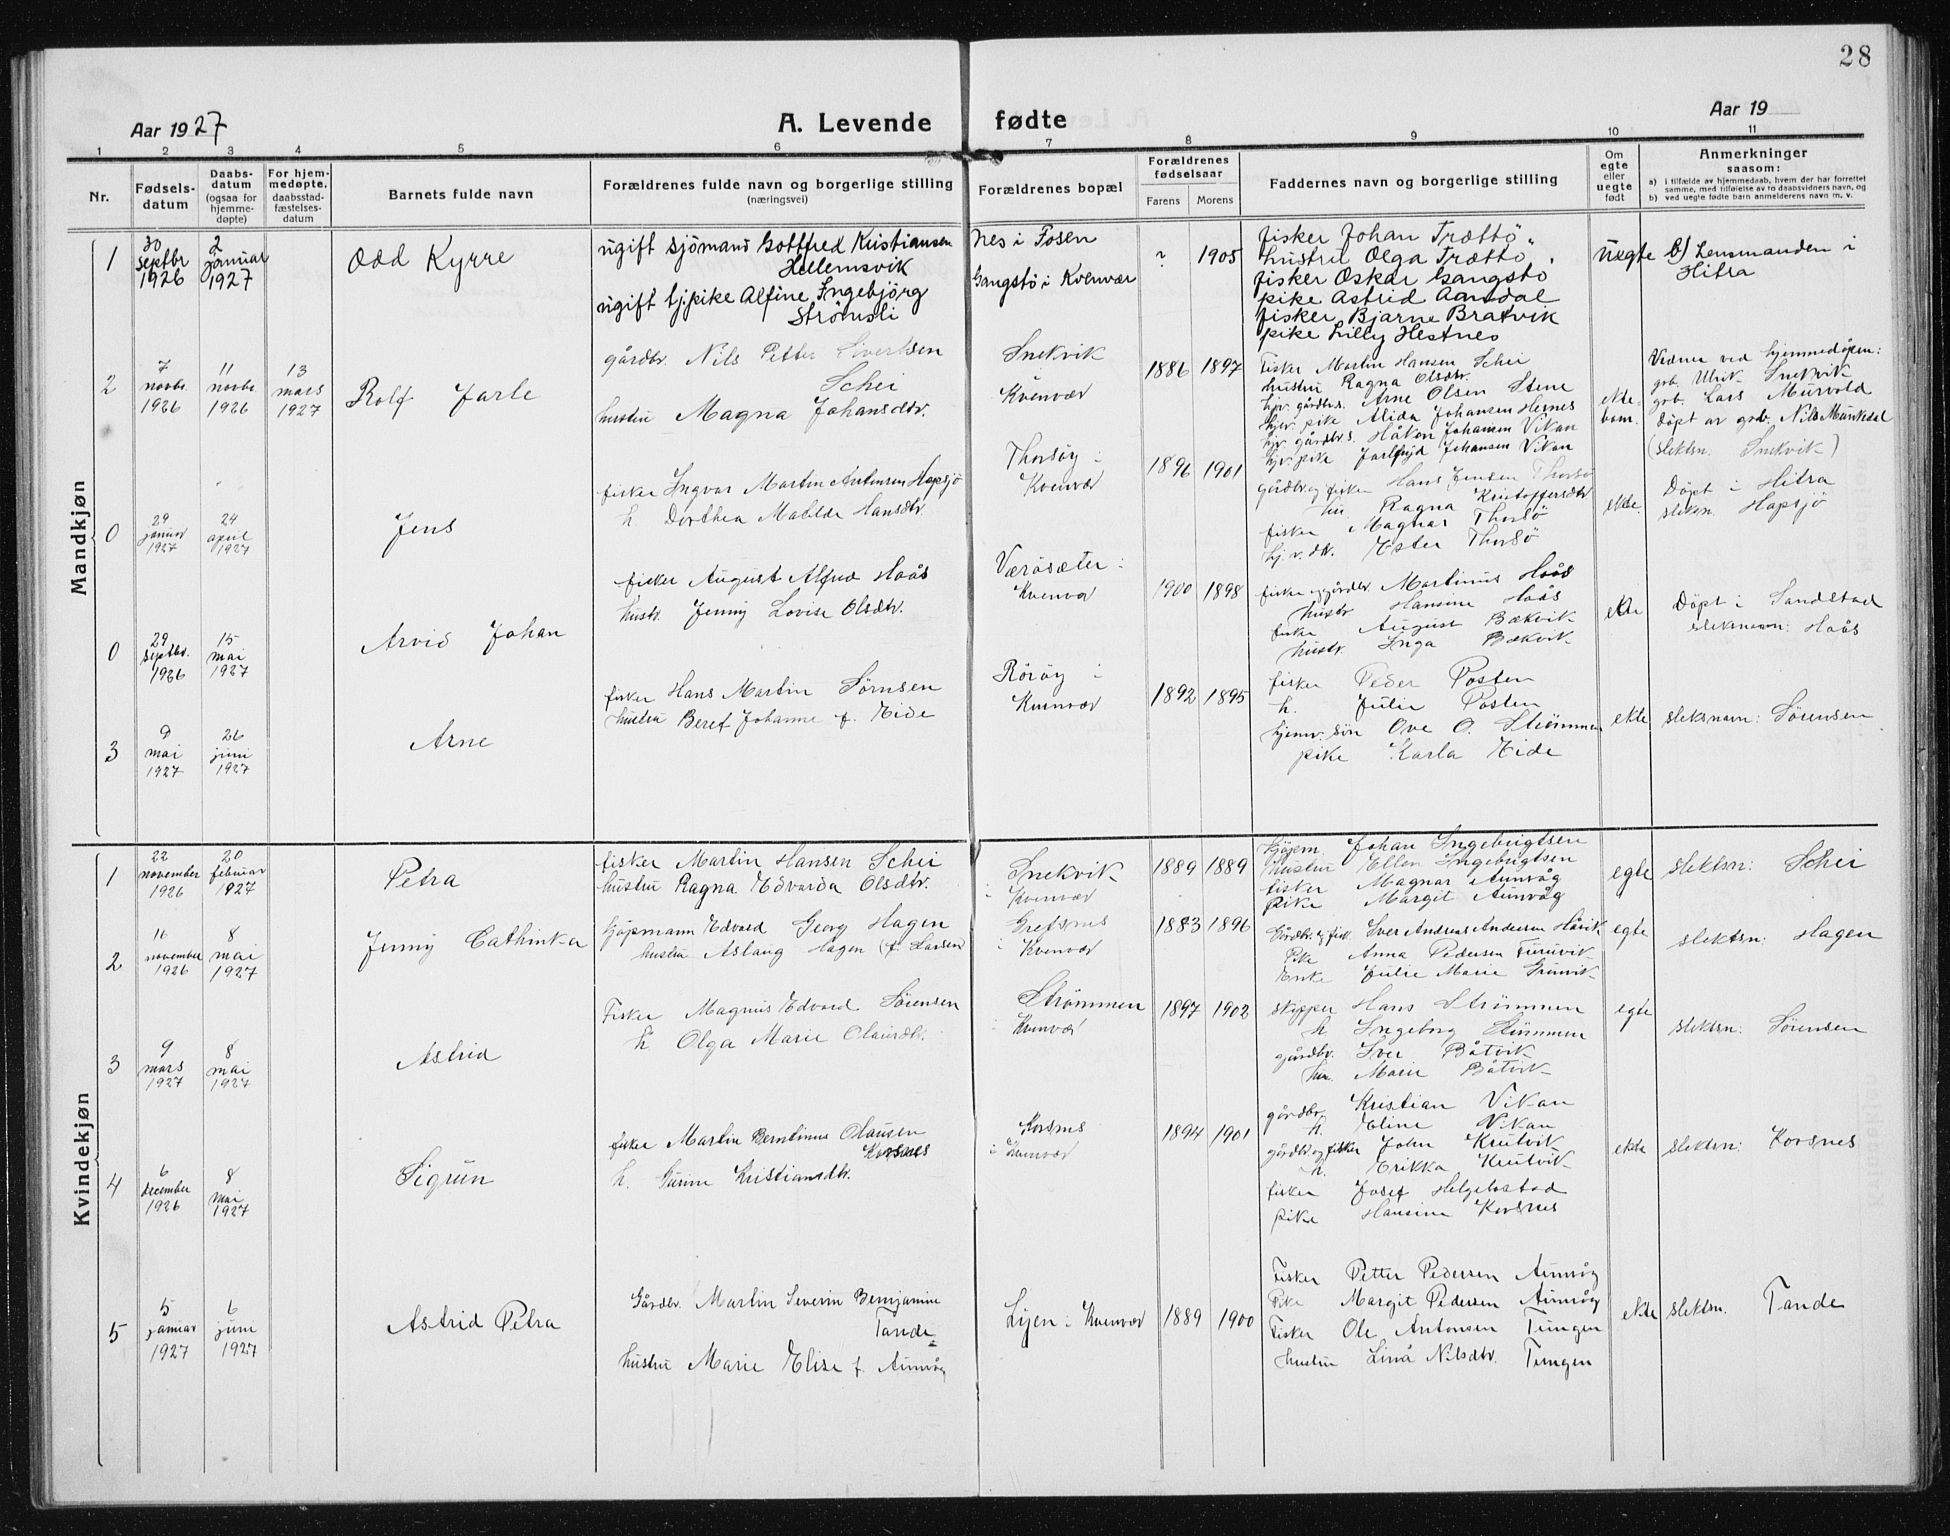 28
Aar 1927
A. Levende fødte
Aar 19
1 2 3 4 5 6 7 8 9 10 11
Nr.
Fødsels-
datum
Daabs-
datum
(ogsaa for
hjemme-
døpte)
For hjem-
medøpte,
daabsstad-
fæstelses-
datum
Barnets fulde navn
Forældrenes fulde navn og borgerlige stilling
(næringsvei)
Forældrenes bopæl
Forældrenes
fødselsaar
Farens Morens
Faddernes navn og borgerlige stilling
Om
egte
eller
uegte
født
Anmerkninger
saasom:
a) i tilfælde av hjemmedaab, hvem der har forrettet
samme, med tilføielse av to daabsvidners navn, og
b) ved uegte fødte barn anmelderens navn m. v.
Mandkjøn
1
30
septbr
1926
2
januar
1927
Odd Kyrre
ugift sjömand Gottfred Kristiansen
Hellemsvik
ugift tj.pike Alfine Ingebjörg
Strömsli
Nes i Fosen
Gangstö i Kvenvær
? 1905
fisker Johan Trættö
hustru Olga Trættö
fisker Oskar Gangstö
pike Astrid Aansdal
fisker Bjarne Bratvik
pike Lilly Hestnes
uegte
b) Lensmanden i
Hitra
2
7
novbr
1926
11
novbr
1926
13
mars
1927
Rolf Jarle
gårdbr. Nils Petter Sivertsen
Schei
hustru Magna Johansdtr.
Snekvik
Kvenvær
1886 1897
Fisker Martin Hansen Schei
hustru Ragna Olsdtr.
hjv. gårdbrs. Arne Olsen Stene
hjv. pike Alida Johansen Hernes
hjv. gårdbrs. Håkon Johansen Vikan
hjv. pike Jarlfrid Johansen Vikan
ekte
barn.
Vidner ved hjemmedåpen:
grb. Ulrik Snekvik
grb. Lars Murvold
døpt av grb. Nils Munkdal
(slektsn. Snekvik)
0
29
januar
1927
24
april
1927
Jens
fisker Ingvar Martin Antonsen Hapsjø
h. Dorthea Matilde Hansdtr.
Thorsøy i
Kvenvær
1896 1901
gårdbr og fisker Hans Jensen Thorsø
hu. Ragna Kristoffersdtr
fisker Magnar Thorsø
hj.v. dtr. Ester Thorsø
ekte.
Døpt i Hitra
slektsn. Hapsjø
0
29
septbr.
1926
15
mai
1927
Arvid Johan
fisker August Alfred Haås
hustr. Jenny Lovise Olsdtr.
Værøsæter i
Kvenvær
1900 1898
fisker og gårdbr. Martinus Haås
hustr. Hansine Haås
fisker August Bækvik
hustr. Inga Bækvik
ekte
Døpt i Sandstad
slektsnavn: Haås
3
9
mai
1927
26
juni
1927
Arne
fisker Hans Martin Sørnsen
hustru Beret Johanne f. Eide
Rørøy i
Kvenvær
1892 1895
fisker Peder Posten
h. Julie Posten
hjemv. søn Ove O. Strømmen
pike Karla Eide
ekte
slektsnavn: Sørensen
Kvindekjøn
1
22
november
1926
20
februar
1927
Petra
fisker Martin Hansen Schei
hustru Ragna Edvarda Olsdtr.
Snekvik
i Kvenvær
1889 1889
Kjøpm. Johan Ingebrigtsen
hustru Ellen Ingebrigtsen
fisker Magnar Aunvåg
Pike Margit Aunvåg
egte
slektsn: Schei
2
16
november
1926
8
mai
1927
Jenny Cathinka
Kjøpmann Edvard Georg Hagen
hustru Aslaug Hagen (f. Larsen
Grefsnes
i Kvenvær
1883 1896
Gårdbr. og fisk. Iver Andreas Andersen Hårvik
Pike Anna Pedersen Furuvik
Enke Julie Marie
egte
slektsn: Hagen
3
9
mars
1927
8
mai
1927
Astrid
Fisker Magnus Edvard Sørensen
h. Olga Marie Olausdtr.
Strømmen
i Kvenvær
1897 1902
skipper Hans Strømmen
h. Ingeborg Strømmen
gårdbr. Iver Båtvik
hu. Marie Båtvik
egte
slektsn: Sørensen
4
6
december
1926
8
mai
1927
Sigrun
fisker Martin Berntinus Olausen
Korsnes
h. Gurine Kristiansdtr.
Korsnes
i Kvenvær
1894 1901
gårdbr. Kristian Vikan
h. Eline Vikan
gårdbr og fisker John Krutvik
h. Erikka Krutvik
fisker Josef Helgebostad
pike Hansine Korsnes
ekte
slektsn: Korsnes
5
5
januar
1927
6
juni
1927
Astrid Petra
Gårdbr. Martin Severin Benjamine
Tande
hustru Marie Elise f. Aunvåg
Lyen i Kvenvær
1889 1900
Fisker Petter Pedersen Aunvåg
Pike Margit Pedersen Aunvåg
Fisker Ole Antonsen Tungen
hustru Lina Nilsdtr. Tungen
ekte
slektsn. Tande